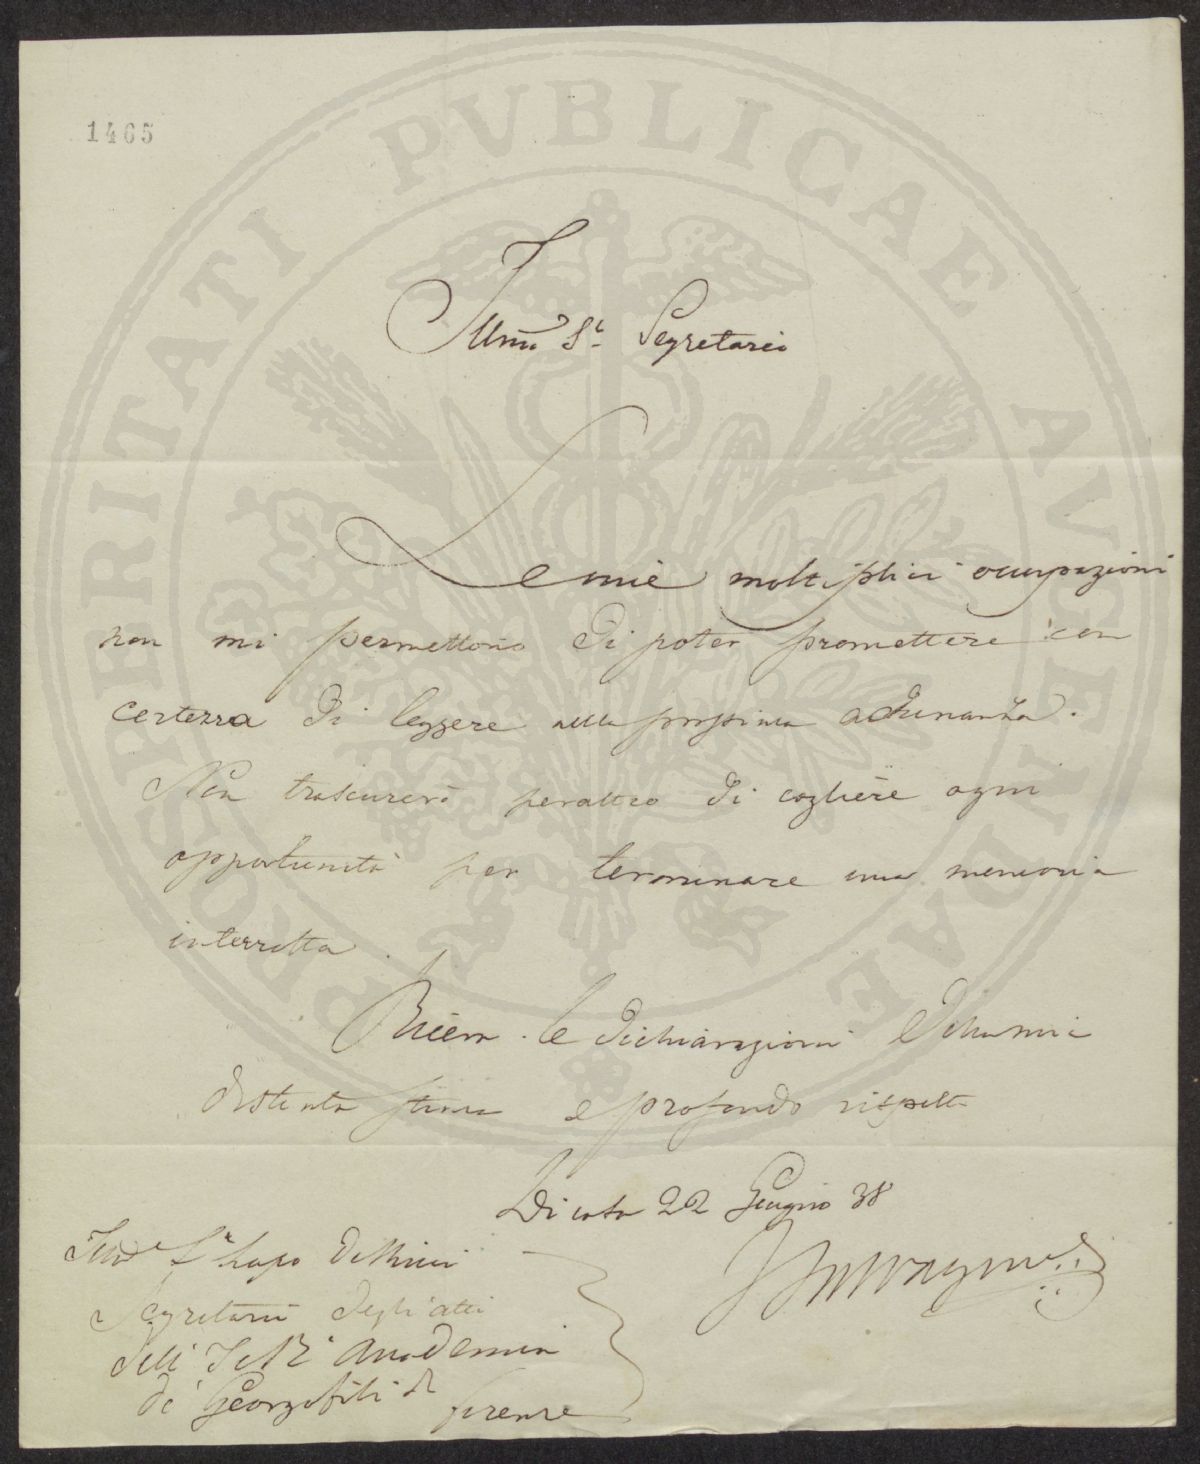 1465
PROSPERITATI PVBLICAE AVGENDAE
Illmo Sr. Segretario
Le mie moltiplici occupazioni
non mi permettono di poter promettere con
certezza di leggere alla prossima adunanza.
Non trascurerò peraltro di cogliere ogni
opportunità per terminare una memoria
interrotta.
Riceva le dichiarazioni della mia
distinta stima e profondo rispetto
Di casa 22 Giugno 38
Illmo Sr Lapo De Ricci
Segretario degli atti
dell' I e R Accademia
de' Georgofili di
Firenze